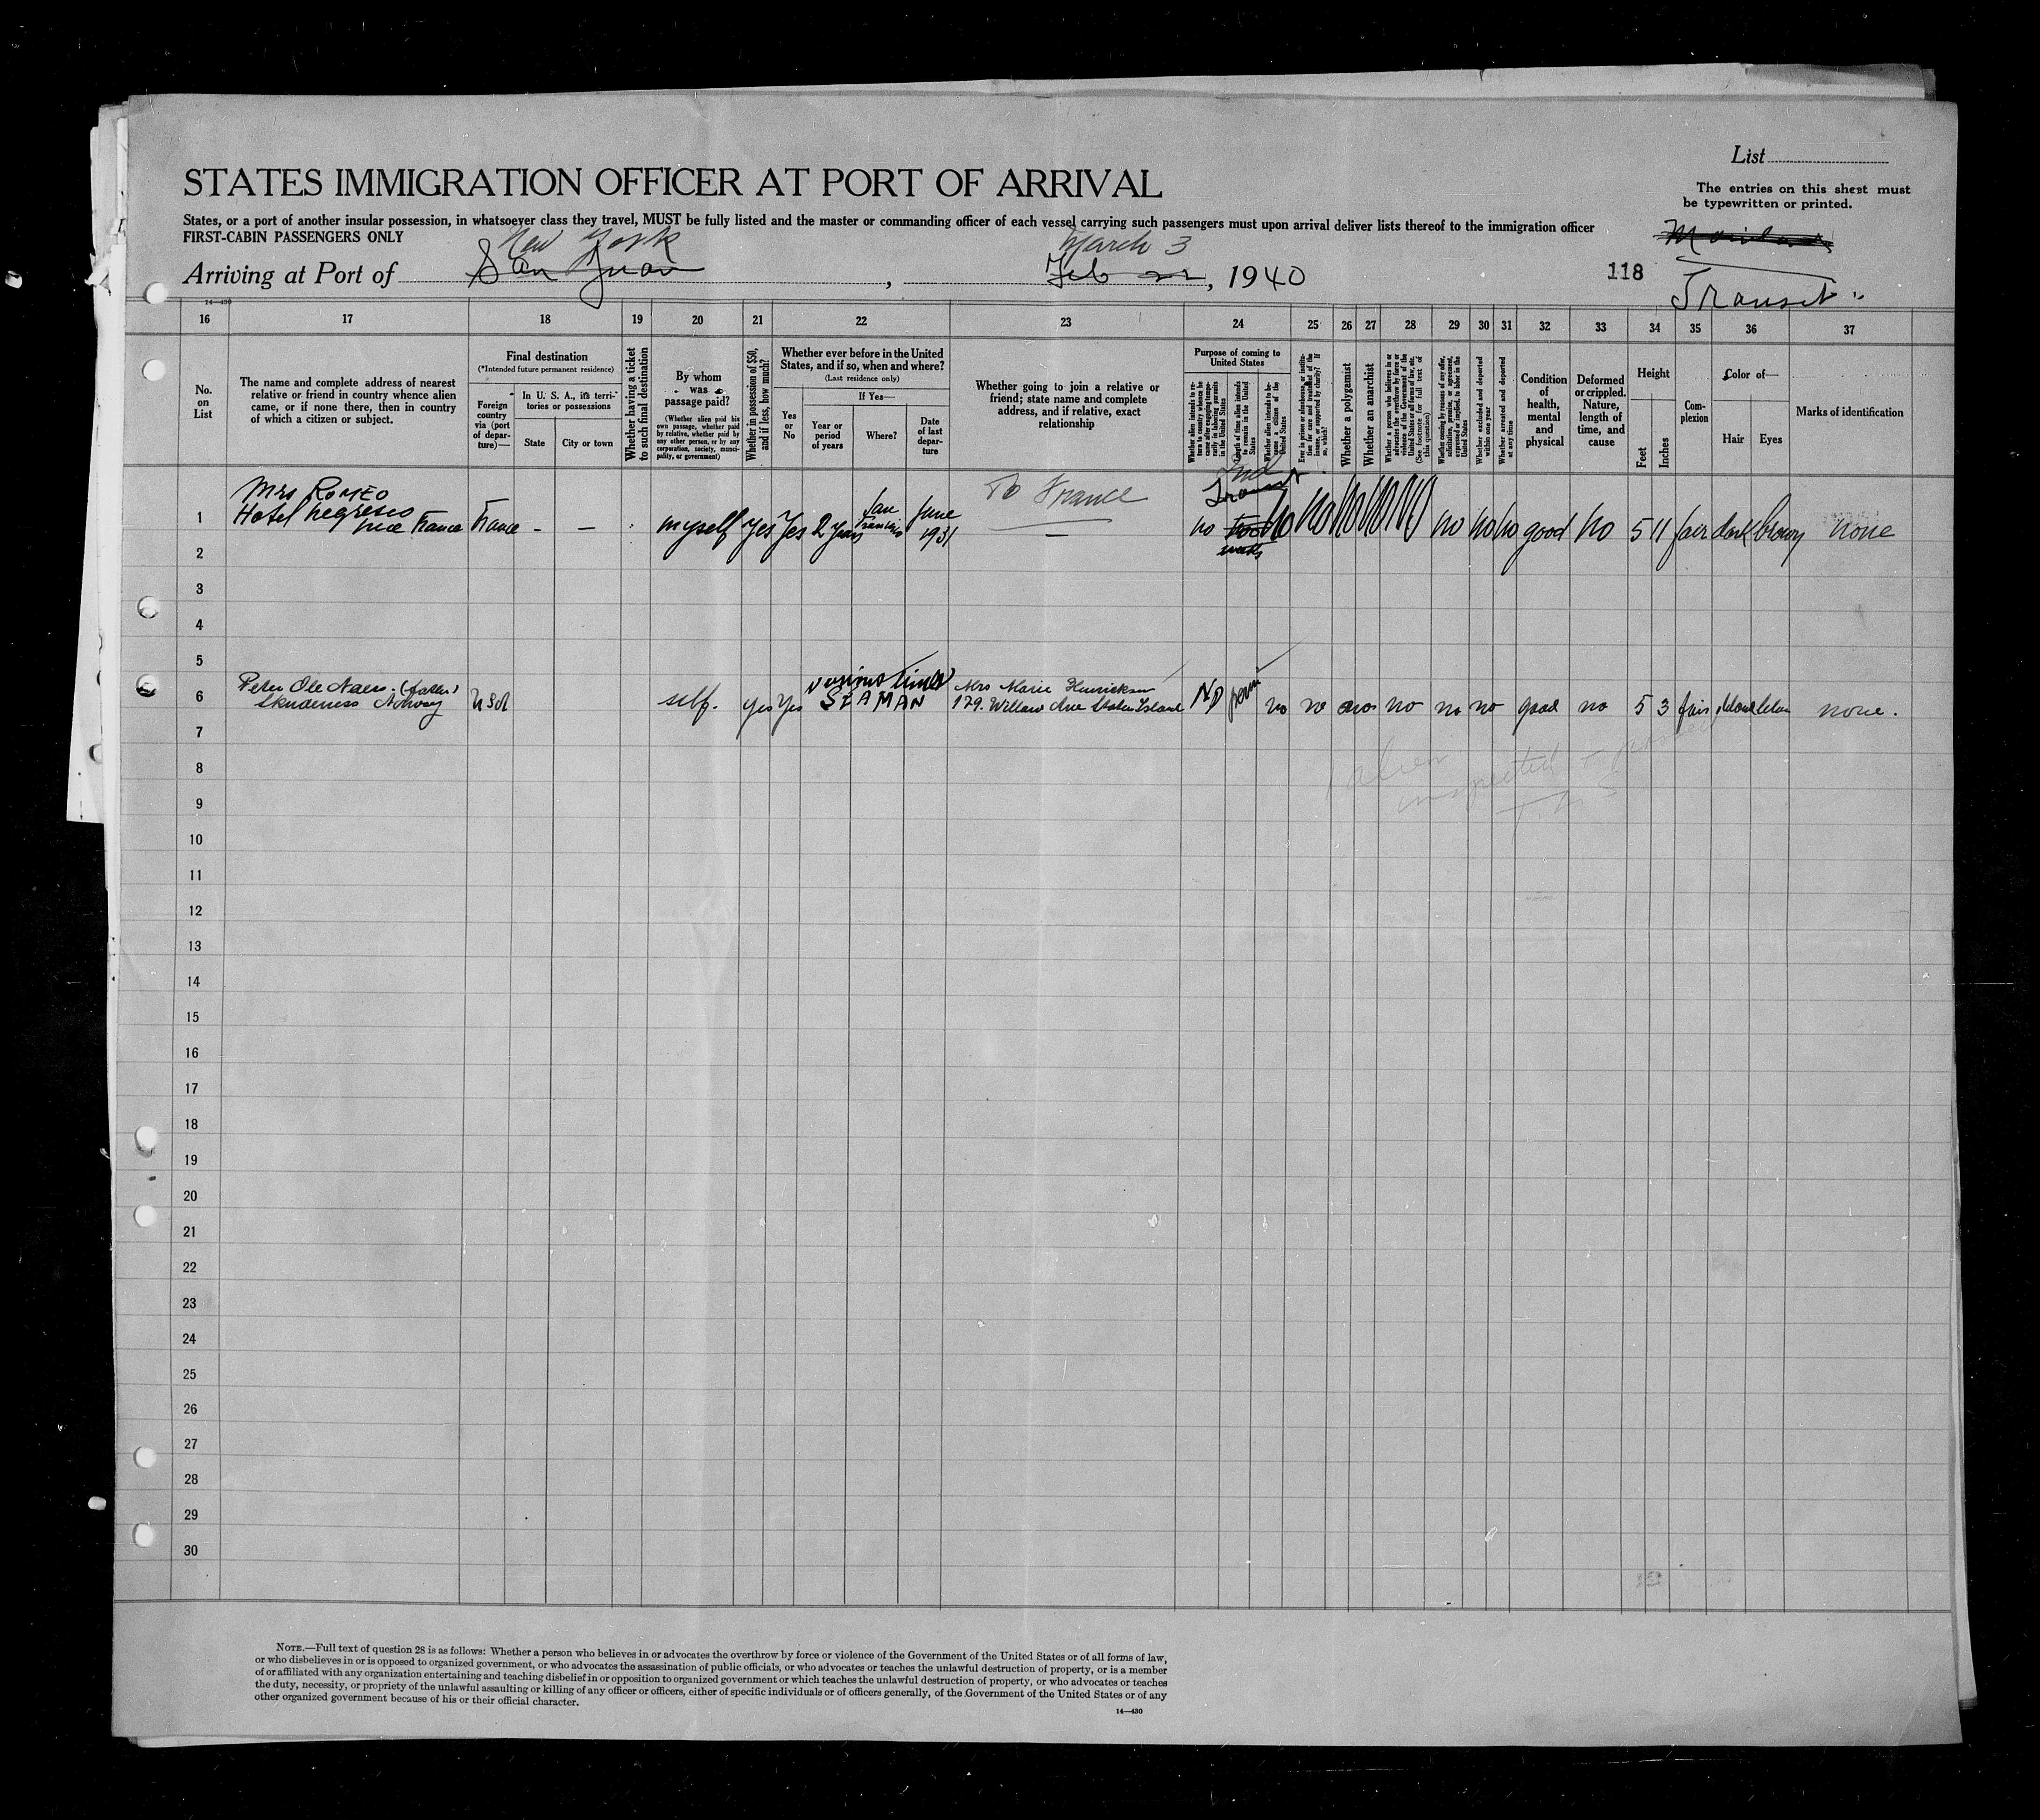 List
STATES IMMIGRATION OFFICER AT PORT OF ARRIVAL
The entries on this sheet must
be typewritten or printed.
States, or a port of another insular possession, in whatsoever class they travel, MUST be fully listed and the master or commanding officer of each vessel carrying such passengers must upon arrival deliver lists thereof to the immigration officer
FIRST-CABIN PASSENGERS ONLY
New York
March 3
Arriving at Port of San Juan, Feb 22, 1940
118
Transit
14—430
16 17 18 19 20 21 22 23 24 25 26 27 28 29 30 31 32 33 34 35 36 37
No.
on
List
The name and complete address of nearest
relative or friend in country whence alien
came, or if none there, then in country
of which a citizen or subject.
Final destination
(*Intended future permanent residence)
Foreign
country
via (port
of depar-
ture)—
In U. S. A., its terri-
tories or possessions
State
City or town
Whether having a ticket
to such final destination
By whom
was
passage paid?
(Whether alien paid his
own passage, whether paid
by relative, whether paid by
any other person, or by any
corporation, society, munici-
pality, or government)
Whether in possession of $50,
and if less, how much?
Whether ever before in the United
States, and if so, when and where?
(Last residence only)
Yes
or
No
If Yes—
Year or
period
of years
Where?
Date
of last
depar-
ture
Whether going to join a relative or
friend; state name and complete
address, and if relative, exact
relationship
Purpose of coming to
United States
Whether alien intends to re-
turn to country whence he
came after engaging tempo-
rarily in laboring pursuits
in the United States
Length of time alien intends
to remain in the United
States
Whether alien intends to be-
come a citizen of the
United States
Ever in prison or almshouse, or institu-
tion for care and treatment of the
insane, or supported by charity? If
so, which?
Whether a polygamist
Whether an anarchist
Whether a person who believes in or
advocates the overthrow by force or
violence of the Government of the
United States or all forms of law, etc.
(See footnote for full text of
this question)
Whether coming by reason of any offer,
solicitation, promise, or agreement,
expressed or implied, to labor in the
United States
Whether excluded and deported
within one year
Whether arrested and deported
at any time
Condition
of
health,
mental
and
physical
Deformed
or crippled.
Nature,
length of
time, and
cause
Height
Feet
Inches
Com-
plexion
Color of—
Hair
Eyes
Marks of identification
Mrs ROMEO
Hotel Negresco
nice France
1 France - — myself yes Yes 2 years San Francisco June 1931 To France — no Transit no no no no no no no no good no 5 11 fair dark brown none
2
3
4
5
various times
Peter Ole Naes. (father)
Skudenes Norway
6 USA self. yes yes SEAMAN
Mrs Marie Henricksen
179. Willow Ave Staten Island
NO perm no no no no no no no good no 5 3 fair none.
7
alien
8
inspected + passed
9
10
11
12
13
14
15
16
17
18
19
20
21
22
23
24
25
26
27
28
29
30
NOTE.—Full text of question 28 is as follows: Whether a person who believes in or advocates the overthrow by force or violence of the Government of the United States or of all forms of law,
or who disbelieves in or is opposed to organized government, or who advocates the assassination of public officials, or who advocates or teaches the unlawful destruction of property, or is a member
of or affiliated with any organization entertaining and teaching disbelief in or opposition to organized government or which teaches the unlawful destruction of property, or who advocates or teaches
the duty, necessity, or propriety of the unlawful assaulting or killing of any officer or officers, either of specific individuals or of officers generally, of the Government of the United States or of any
other organized government because of his or their official character.
14—430